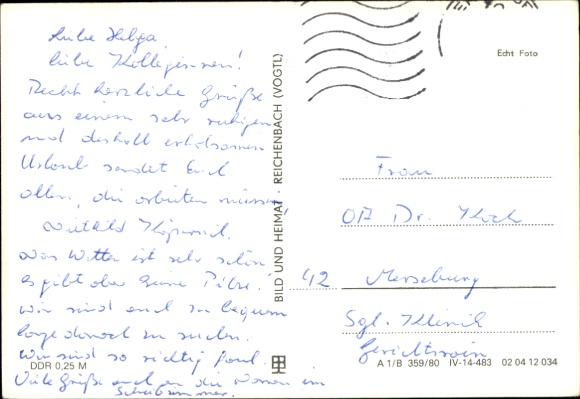 Liebe Helga,
liebe Kolleginnen!
Recht herzliche Grüße
aus einem sehr ruhigen
und deshalb erholsamen
Urlaub sendet Euch
allen, die arbeiten müssen,
Das Wetter ist sehr schön
es gibt aber keine Pilze.
Wir sind auch zu bequem
lange danach zu suchen.
Wir sind so richtig faul.
Viele Grüße auch an die Damen im
Schreibzimmer.
DDR 0,25 M
BILD UND HEIMAT · REICHENBACH (VOGTL)
Echt Foto
Frau
OA Dr. Koch
42 Merseburg
Sgl. Klinik
Gerichtsrain
A 1/B 359/80 IV-14-483 02 04 12 034